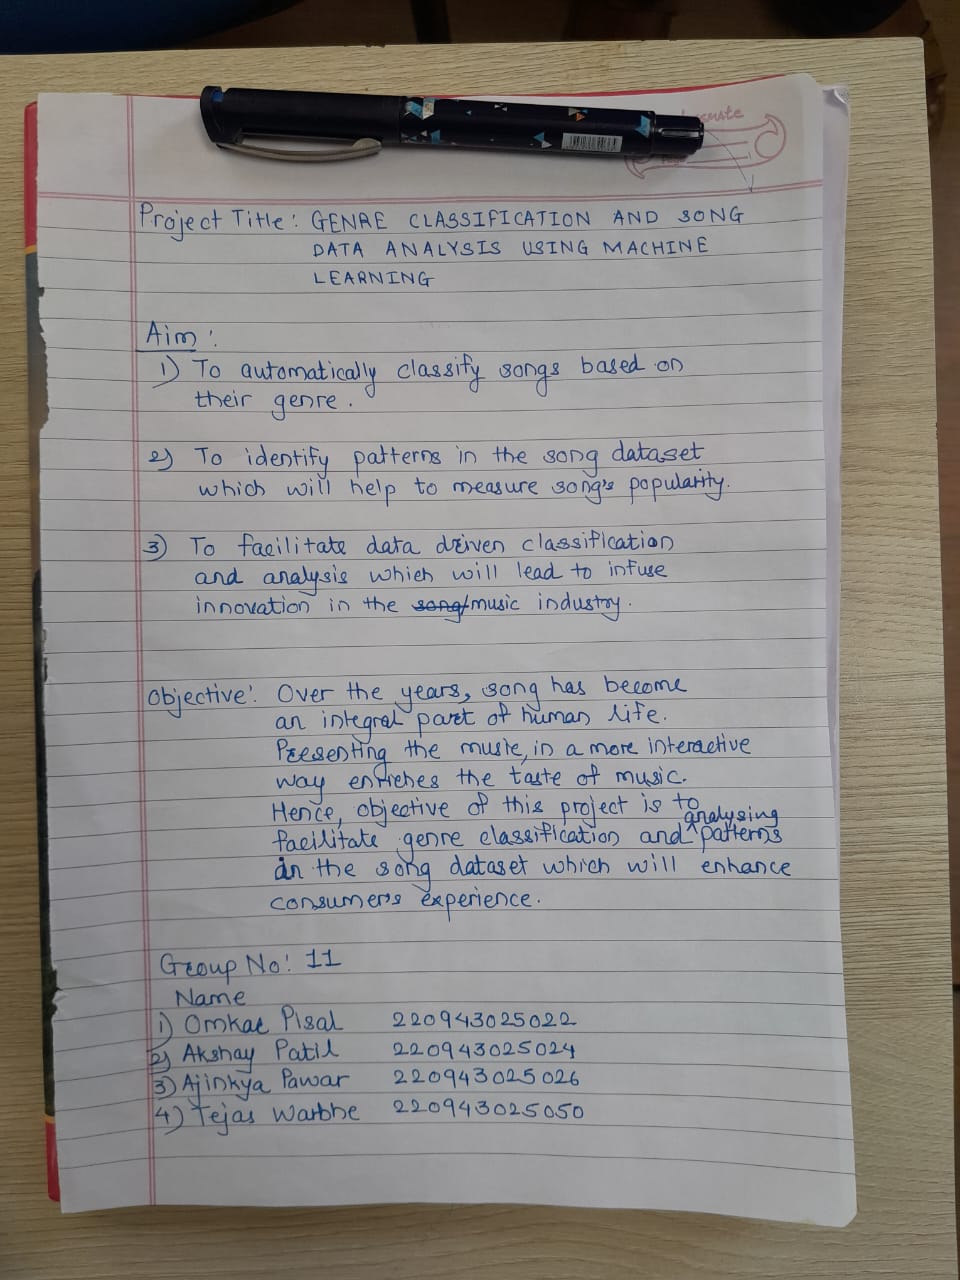 Project Title: GENRE CLASSIFICATION AND SONG
DATA ANALYSIS USING MACHINE
LEARNING
Aim:
1) To automatically classify songs based on
their genre.
2) To identify patterns in the song dataset
which will help to measure song's popularity.
3) To facilitate data driven classification
and analysis which will lead to infuse
innovation in the song/music industry.
Objective: Over the years, song has become
an integral part of human life.
Presenting the music, in a more interactive
way enriches the taste of music.
Hence, objective of this project is to
facilitate genre classification and analysing patterns
in the song dataset which will enhance
consumers experience.
Group No: 11
Name
1) Omkar Pisal 220943025022
2) Akshay Patil 220943025024
3) Ajinkya Pawar 220943025026
4) Tejas Warbhe 220943025050